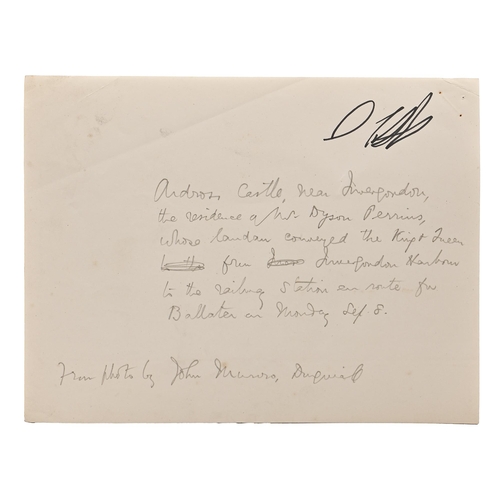 Ardross Castle, near Invergordon,
the residence of Mr Dyson Perrins,
whose landau conveyed the King & Queen
from Invergordon Harbour
to the railway station en route for
Ballater on Monday Sep. 8.
From photo by John Munro, Dingwall